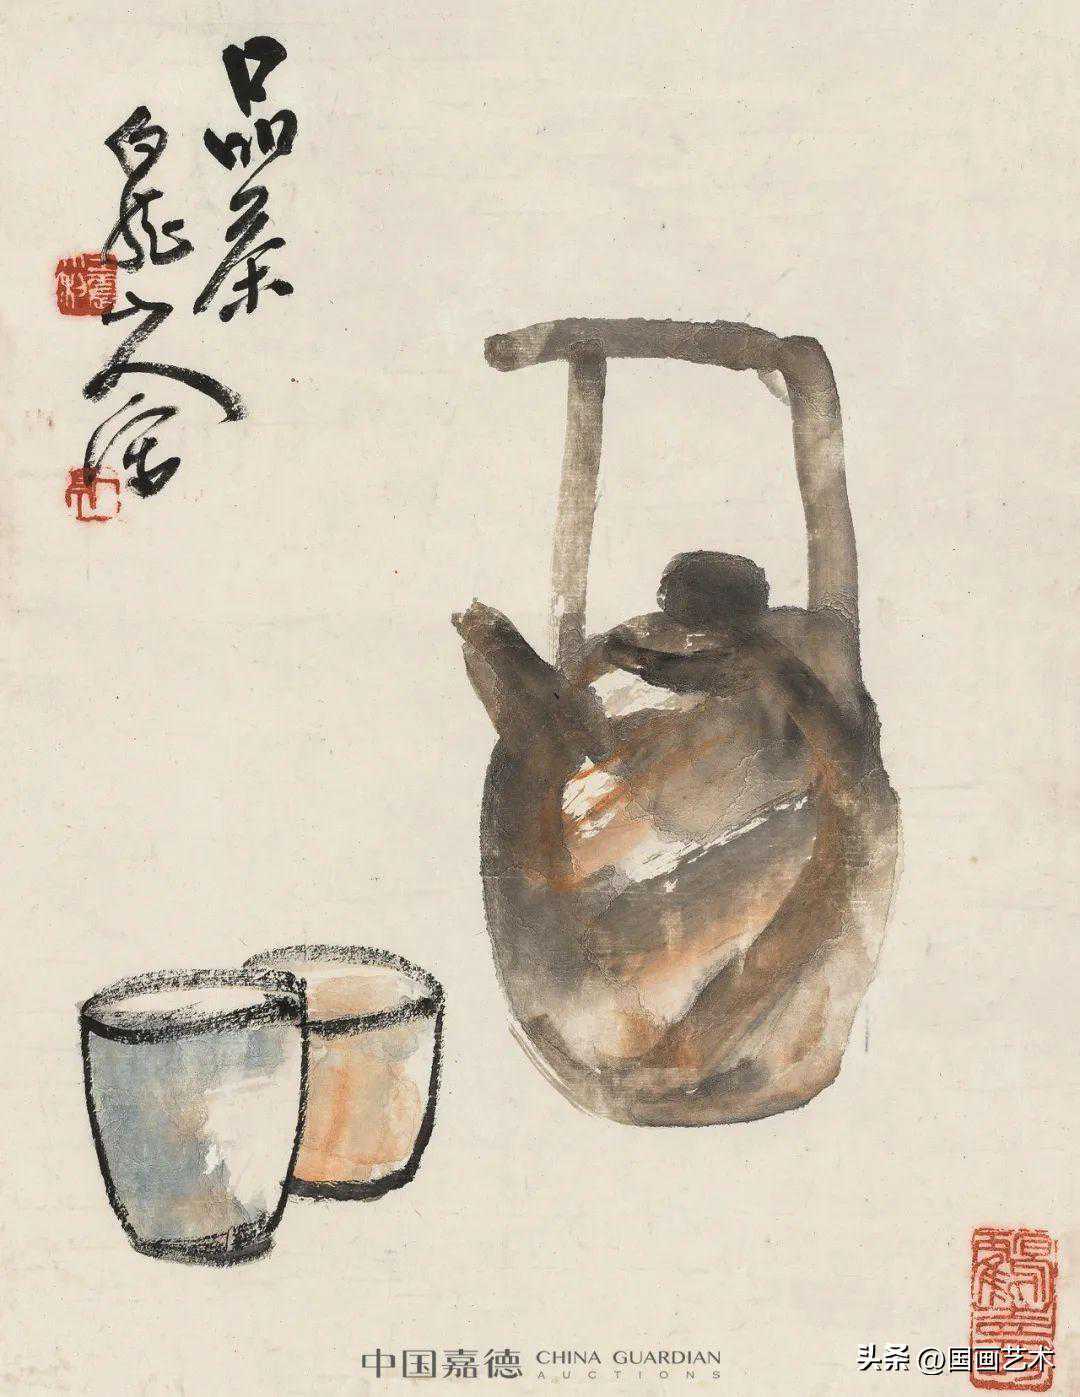 品茶
白龍山人寫
中国嘉德 CHINA GUARDIAN
AUCTIONS
头条 @国画艺术